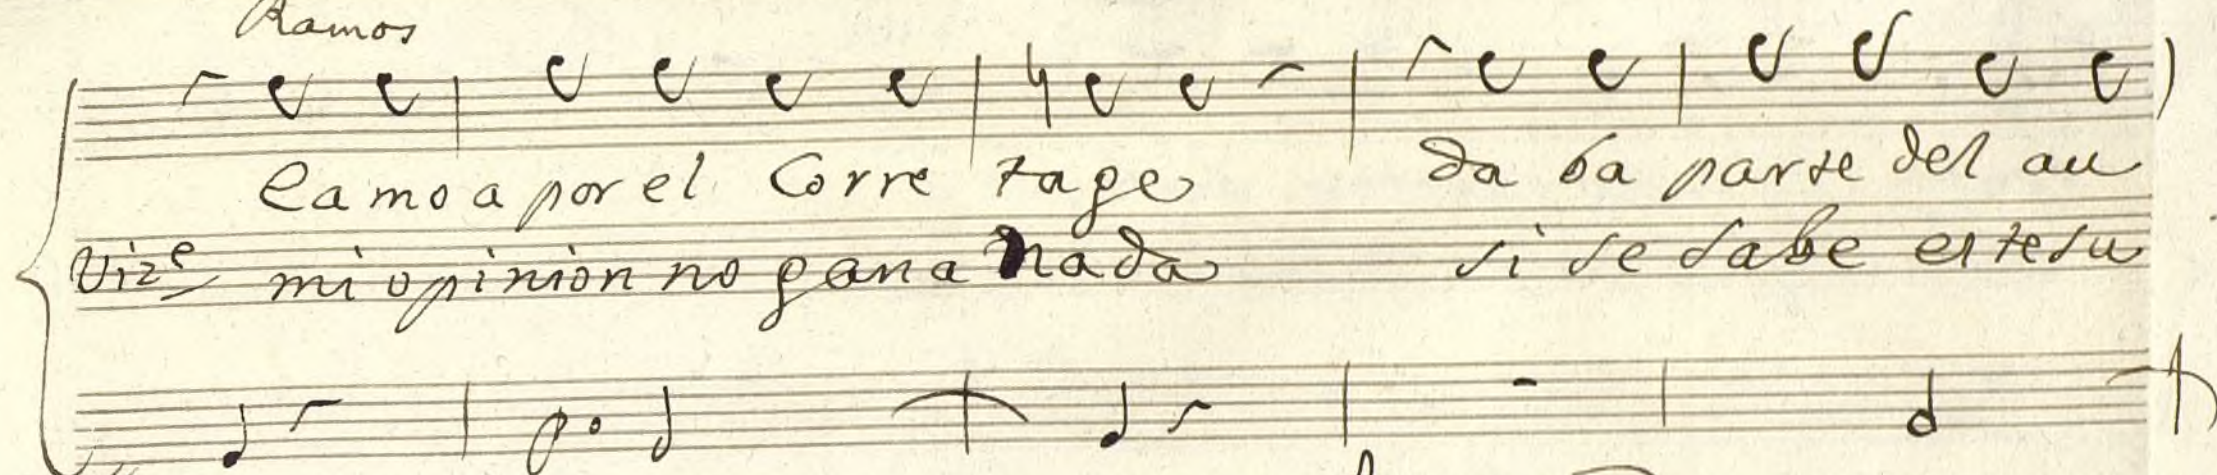 Ramos
Camoa por el Corre tage da ba parte del au
Vizᵉ mi opinion no gana nada si se sabe este su